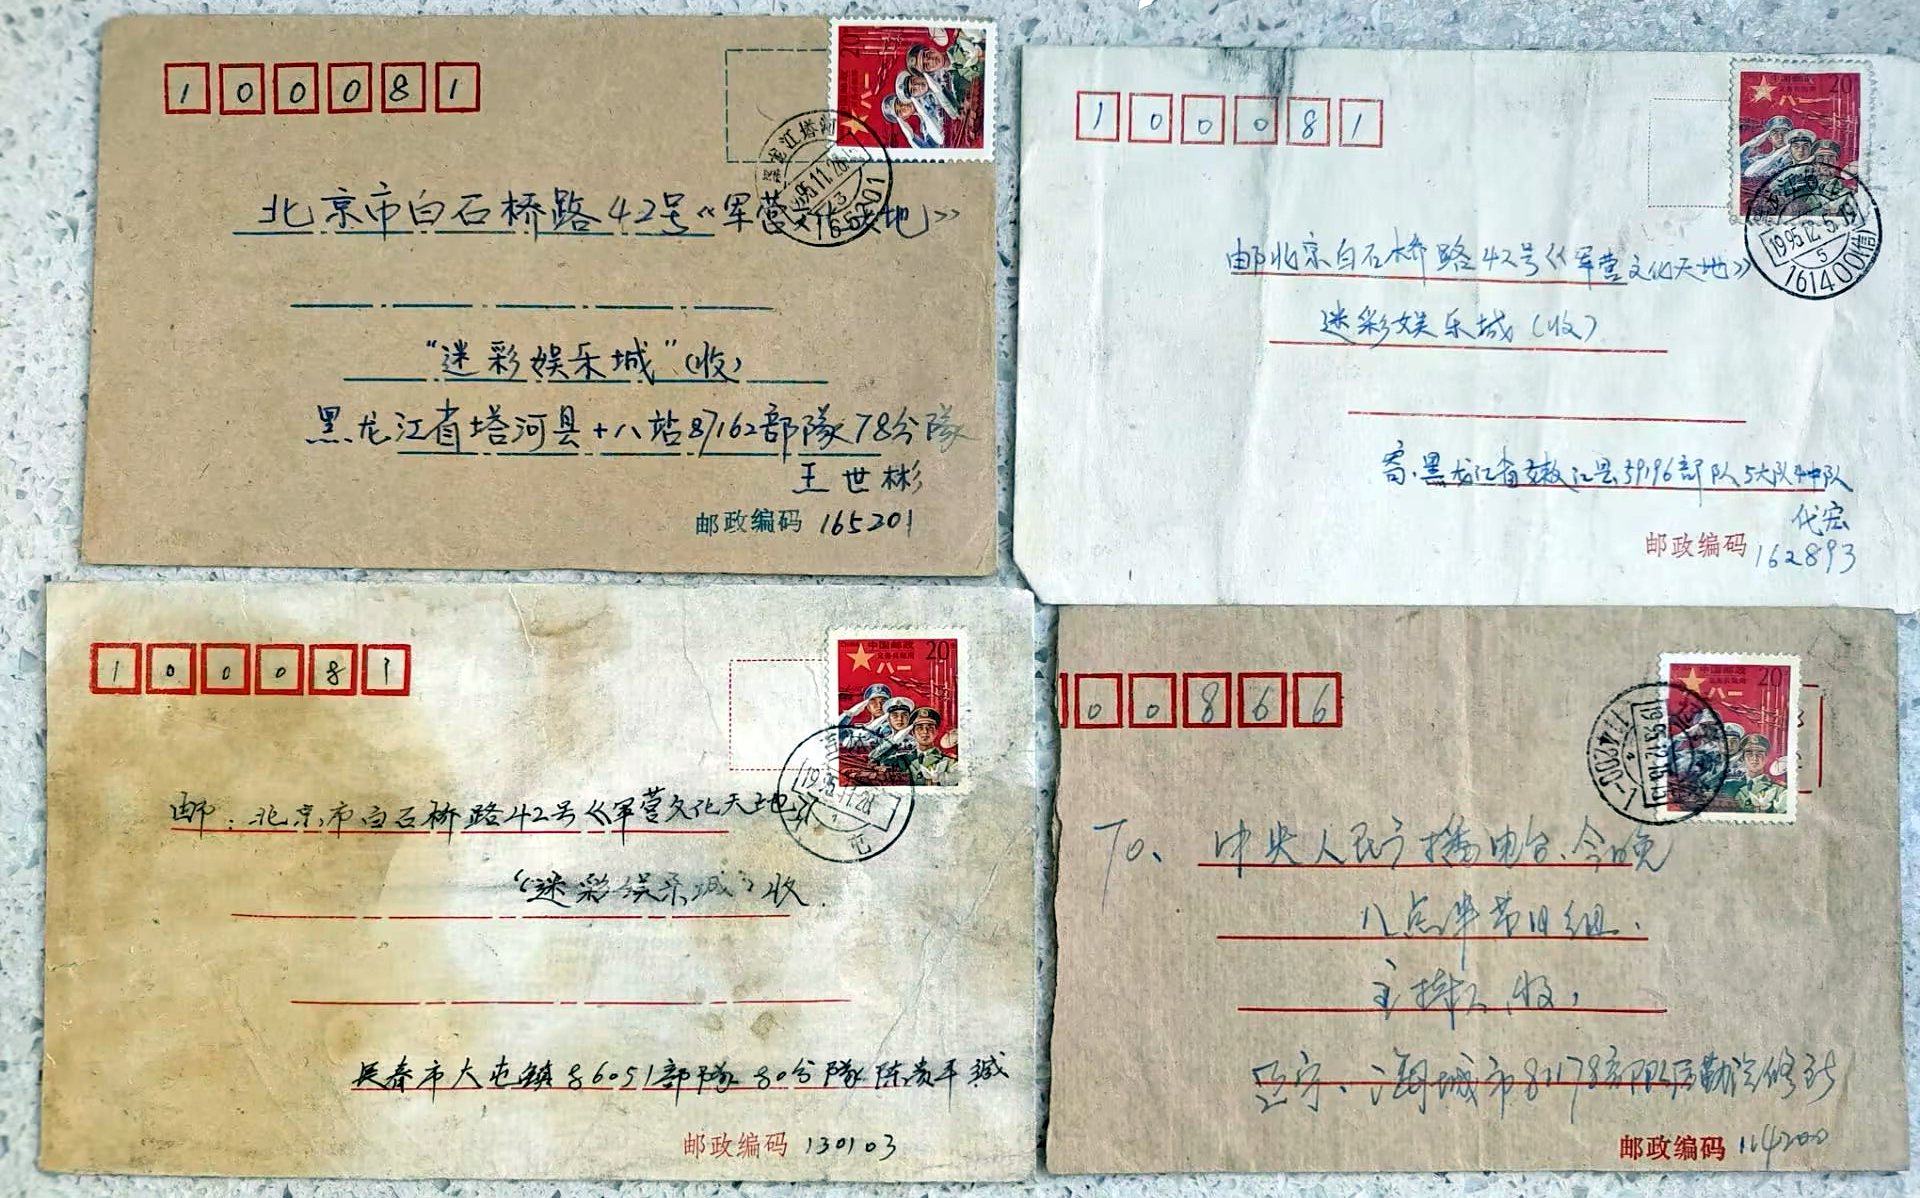 100081
20
八一
黑龙江塔河
1995.11.28
165201
北京市白石桥路42号《军营文化天地》
“迷彩娱乐城”(收)
黑龙江省塔河县十八站87162部隊78分隊
王世彬
邮政编码 165201
100081
中国邮政 20
八一
1995.12.5.19
5
161400(信)
邮北京白石桥路42号《军营文化天地》
迷彩娱乐城(收)
寄:黑龙江省嫩江县39196部队5大队4中队
代宏
邮政编码 162893
100081
中国邮政 20
义务兵专用
八一
吉林
1995.11.28
邮:北京市白石桥路42号《军营文化天地》
“迷彩娱乐城”收
长春市大屯镇86051部隊80分隊陈贵平缄
邮政编码 130103
00866
中国邮政 20
八一
1995.12.15
114200-1
To、中央人民广播电台、今晚
八点半节目组、
主持人收,
辽宁、海城市81178部队后勤汽修所
邮政编码 114200